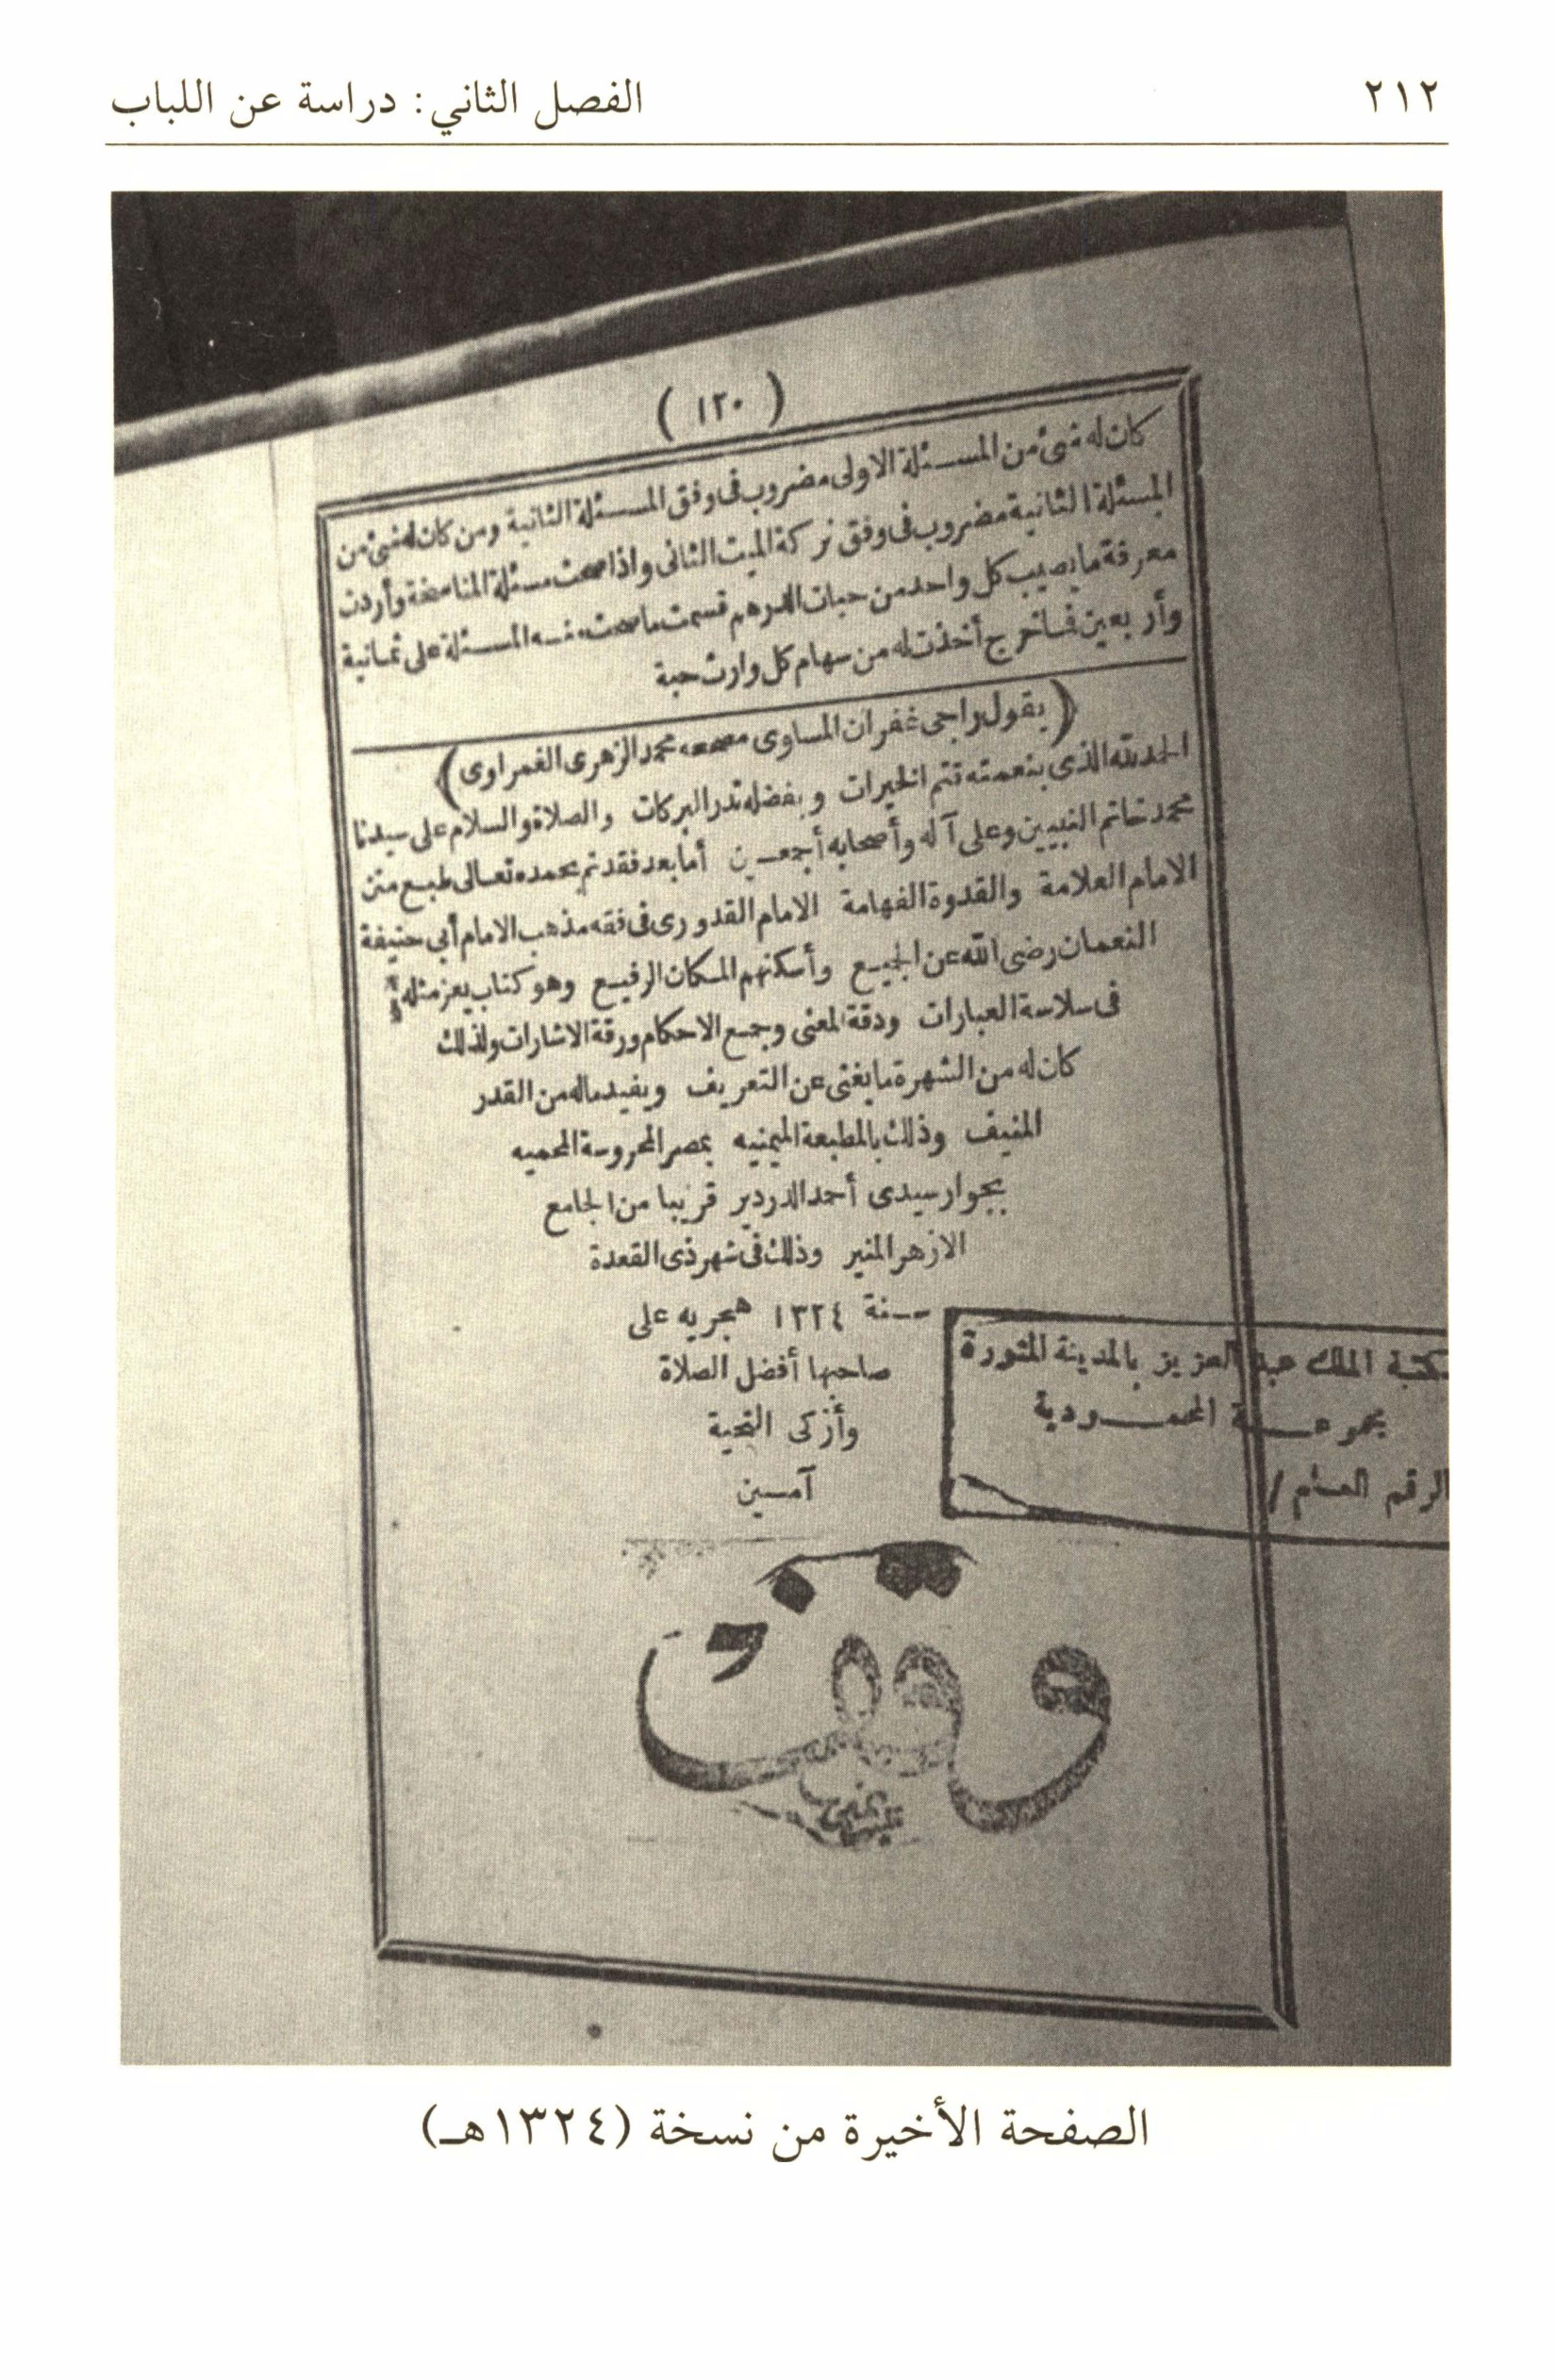 ٢١٢
الفصل الثاني: دراسة عن اللباب
( ١٢٠ )
كان له شئ من المسئلة الاولى مضروب فى وفق المسئلة الثانية ومن كان له شئ من
المسئلة الثانية مضروب فى وفق تركة الميت الثانى واذا صحت مسئلة المناسخة وأردت
معرفة ما يصيب كل واحد من حبات الدرهم قسمت ما صحت منه المسئلة على ثمانية
وأربعين فما خرج أخذت له من سهام كل وارث حبة
(يقول راجى غفران المساوى مصححه محمد الزهرى الغمراوى)
الحمد لله الذى بنعمته تتم الخيرات وبفضله تدر البركات والصلاة والسلام على سيدنا
محمد خاتم النبيين وعلى آله وأصحابه أجمعين أما بعد فقد تم بحمده تعالى طبع متن
الامام العلامة والقدوة الفهامة الامام القدورى فى فقه مذهب الامام أبى حنيفة
النعمان رضى الله عن الجميع وأسكنهم المكان الرفيع وهو كتاب يعز مثله
فى سلاسة العبارات ودقة المعنى وجمع الاحكام ورقة الاشارات ولذلك
كان له من الشهرة ما يغنى عن التعريف ويفيد ماله من القدر
المنيف وذلك بالمطبعة الميمنيه بمصر المحروسة المحميه
بجوار سيدى أحمد الدردير قريبا من الجامع
الازهر المنير وذلك فى شهر ذى القعدة
سنة ١٣٢٤ هجريه على
صاحبها أفضل الصلاة
وأزكى التحية
آمين
مكتبة الملك عبد العزيز بالمدينة المنورة
مجموعة المحمودية
الرقم العام /
وقف
الصفحة الأخيرة من نسخة (١٣٢٤هـ)